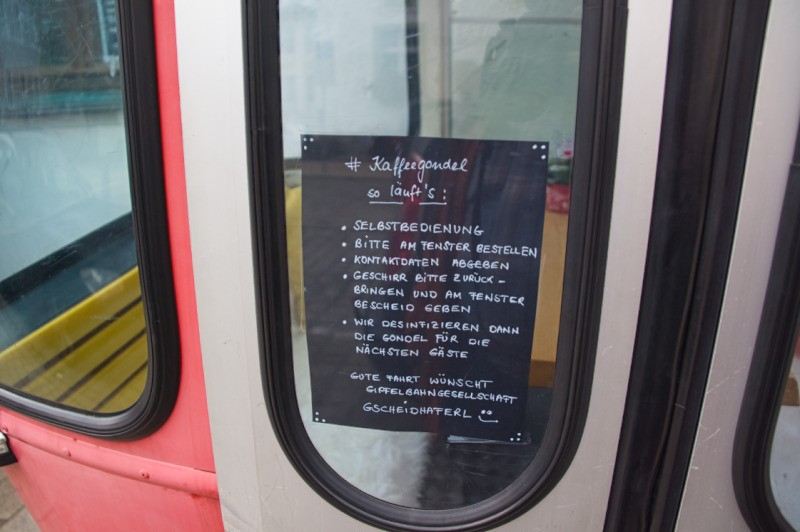 # Kaffeegondel
so läuft's:
• SELBSTBEDIENUNG
• BITTE AM FENSTER BESTELLEN
• KONTAKTDATEN ABGEBEN
• GESCHIRR BITTE ZURÜCK-
BRINGEN UND AM FENSTER
BESCHEID GEBEN
• WIR DESINFIZIEREN DANN
DIE GONDEL FÜR DIE
NÄCHSTEN GÄSTE
GUTE FAHRT WÜNSCHT
GIPFELBAHNGESELLSCHAFT
GSCHEIDHAFERL